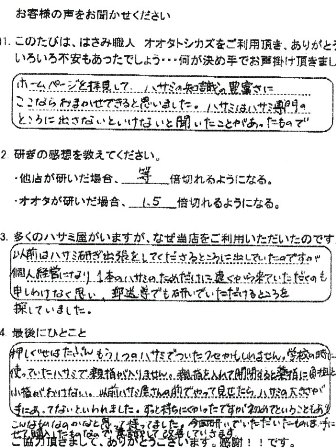 お客様の声をお聞かせください
1. このたびは、はさみ職人 オオタトシカズをご利用頂き、ありがと
いろいろ不安もあったでしょう・・・何が決め手でお声掛け頂きまし
ホームページを拝見して ハサミの知識の豊富さに
ここならまかせできると思いました。ハサミはハサミ専門の
ところに出さないといけないと聞いたことがあったもので
2 研ぎの感想を教えてください。
・他店が研いだ場合、 等 倍切れるようになる。
・オオタが研いだ場合、 1.5 倍切れるようになる。
3. 多くのハサミ屋がいますが、なぜ当店をご利用いただいたのです
以前はハサミ研ぎ出張をしてくださるところに出していたのですが
個人経営になり 1本のハサミのためだけに遠くから来ていただくのも
申しわけなく思い、郵送等でも研いでいただけるところを
探していました。
4 最後にひとこと
押しぐせはたぶん もう1つのハサミでついたクセかもしれません。学校の時に
使っていたハサミで
小指がわない。以前ハサミ屋さんの前でやって見せたら ハサミの大きさが
手にあってないといわれました。
こんなものなのかなと思って使ってました。今回研いでいただいたものを
ご協力頂きまして、ありがとうございます。感謝！！です。